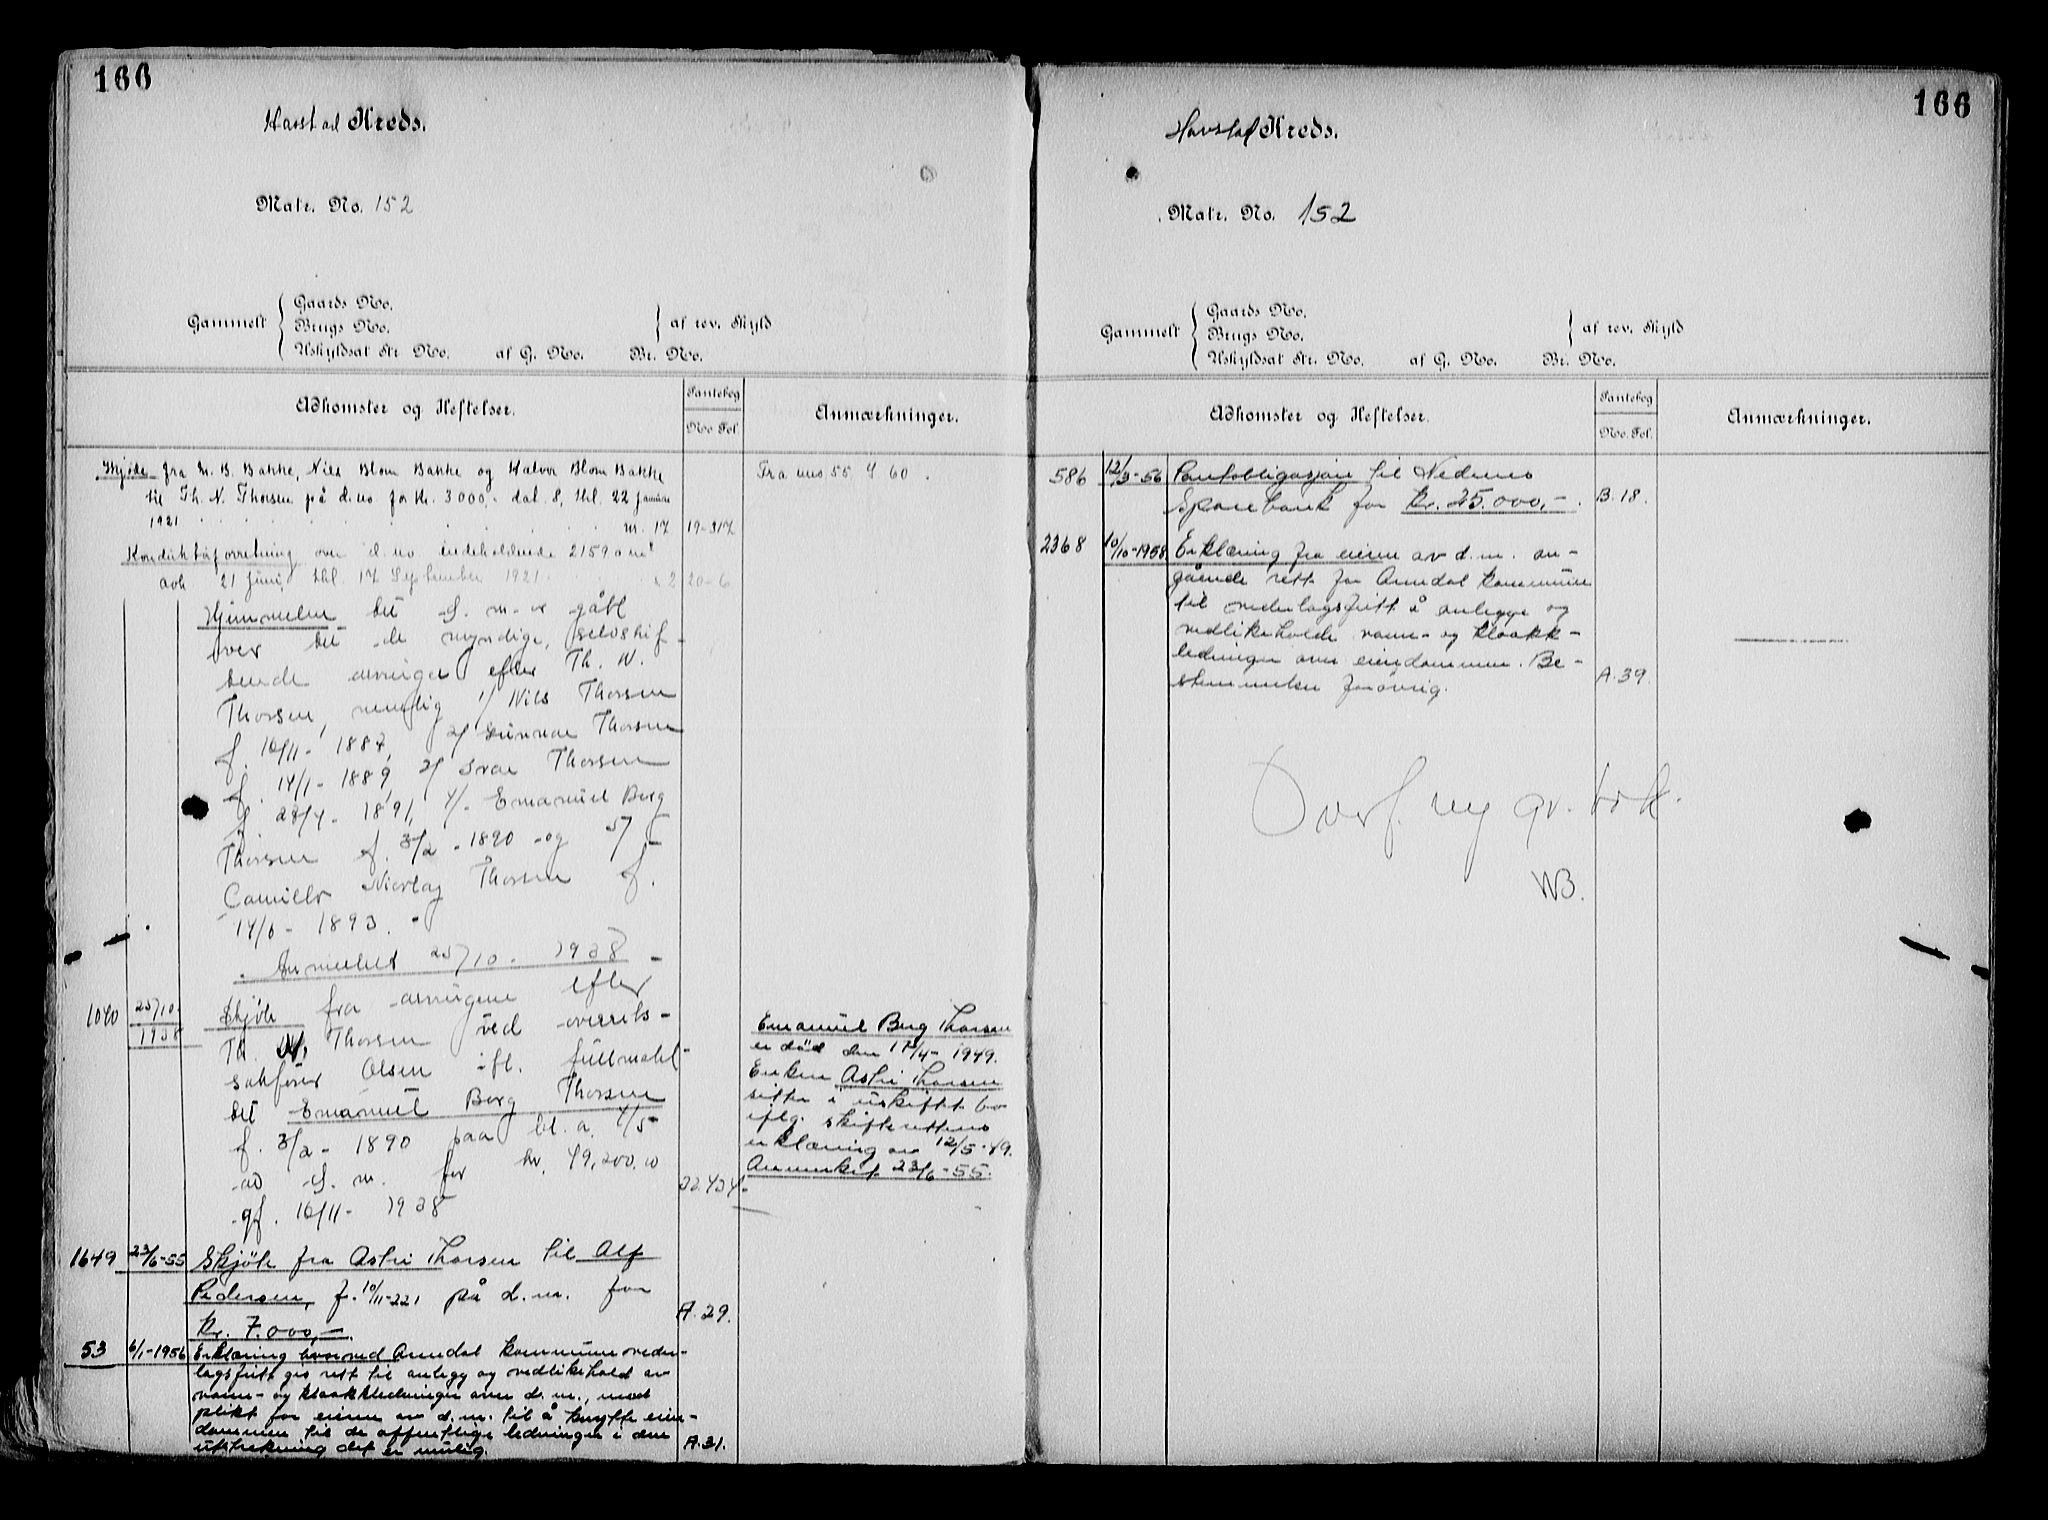 166
Havstad Kreds.
Matr. No. 152
Gaards No.
Gammelt Brugs No. af rev. Skyld
Uskyldsat Str. No. af G. No. Br. No.
Adkomster og Heftelser. Pantebog No. Fol. Anmærkninger.
Skjøde fra N. B. Bakke, Niels Blom Bakke og Halvor Blom Bakke
til Th. N. Thorsen på d. no for kr. 3000,- dat. 8, thl. 22 Januar
1921 m. 17 19-317
Fra nus 55 & 60.
Konduktørforretning over d. no indeholdende 2159 o m²
avh 21 juni, thl. 17 September 1921. 20-6
Hjemmelen til d. m. er gått
over til de myndige, selvskif-
tende arvinger efter Th. N.
Thorsen, nemlig 1/ Nils Thorsen
f. 16/11- 1887, 2/ Gunnar Thorsen
f. 14/1- 1889, 3/ Ivar Thorsen
f. 28/4- 1891, 4/- Emanuel Berg
Thorsen f. 3/2 - 1890 - og 5/ -
Camillo Nicolay Thorsen f.
14/6- 1893. -
Anmeldt 25/10 - 1938 -
1040 25/10- 1938 Skjøte fra arvingene efter
Th. N. Thorsen ved overrets-
sakfører Olsen ifl. fullmakt-
til Emanuel Berg Thorsen
f. 3/2- 1890 paa bl. a. 4/5-
av d. m. for kr. 49,200.00
gf. 16/11- 1938 22.434-
Emanuel Berg Thorsen
er død den 17/4- 1949.
Enken Astri Thorsen
sitter i uskiftet bo
iflg. skifterettens
erklæring av 12/5-49.
Anmerket 23/6-55.
1649 23/6-55 Skjøte fra Astri Thorsen til Alf
Pedersen, f. 10/11-221 på d. m. for
kr. 7.000,-. A. 29.
53 6/1-1956 Erklæring hvorved Arendal kommune veder-
lagsfritt gis rett til anlegg og vedlikehold av
vann- og kloakkledninger over d. m., med
plikt for eieren av d. m. til å knytte eien-
dommen til de offentlige ledninger i den
utstrekning det er mulig. A. 31.
166
Havstad Kreds.
Matr. No. 152
Gaards No.
Gammelt Brugs No. af rev. Skyld
Uskyldsat Str. No. af G. No. Br. No.
Adkomster og Heftelser. Pantebog No. Fol. Anmærkninger.
586 12/3-56 Pantobligasjon til Nedenes
Sparebank for kr. 25.000,-. B. 18.
2368 10/10-1958 Erklæring fra eieren av d. m. an-
gående rett for Arendal kommune
til vederlagsfritt å anlegge og
vedlikeholde vann- og kloakk-
ledninger over eiendommen. Be-
stemmelser forøvrig. A. 39.
Overf. ny gr. bok.
WB.